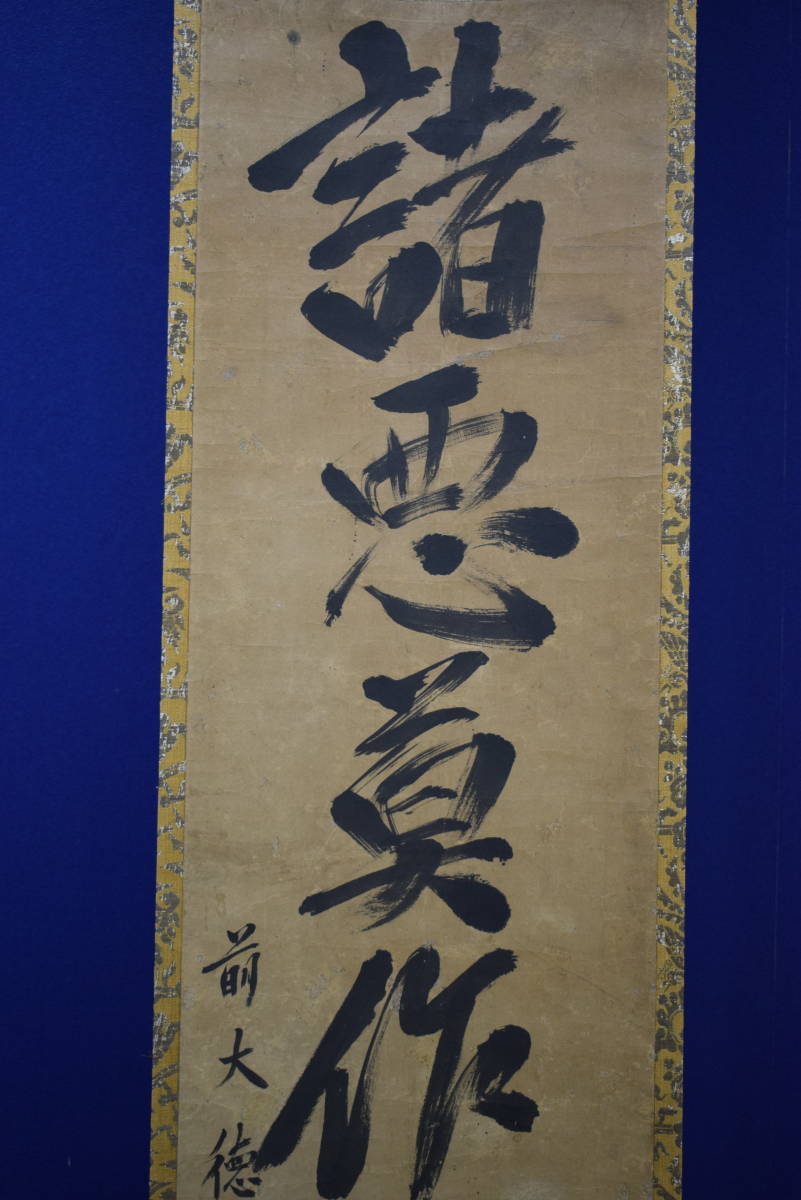 諸悪莫作
前大徳